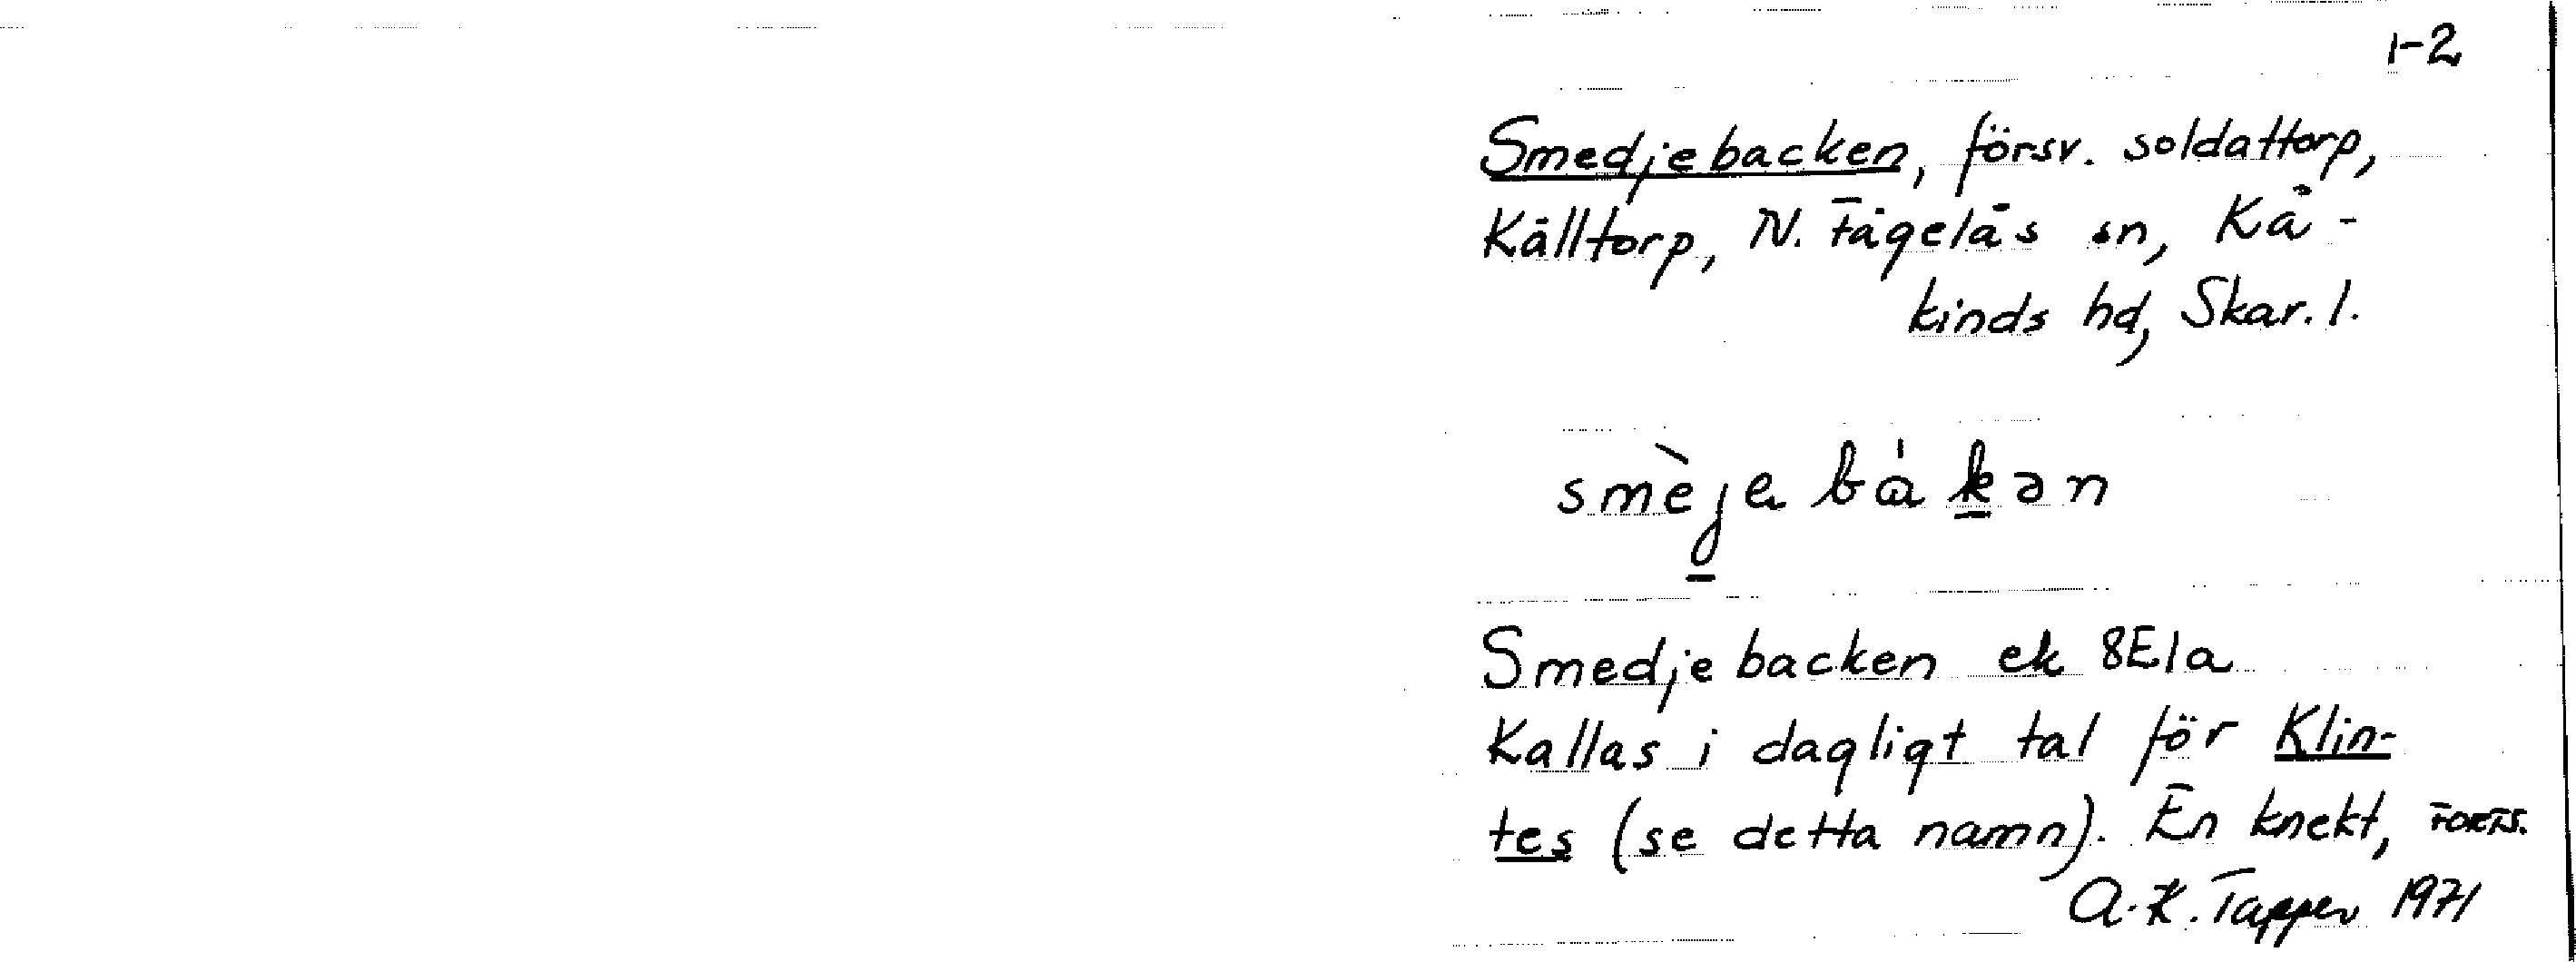 1-2
Smedjebacken, försv. soldattorp,
Källtorp, N. Fågelås sn, Kå-
kinds hd, Skar. l.
smèjabàkən
Smedjebacken ek 8E1a
Kallas i dagligt tal för Klin-
tes (se detta namn). En knekt, FORTS.
A.-K. Tapper 1971